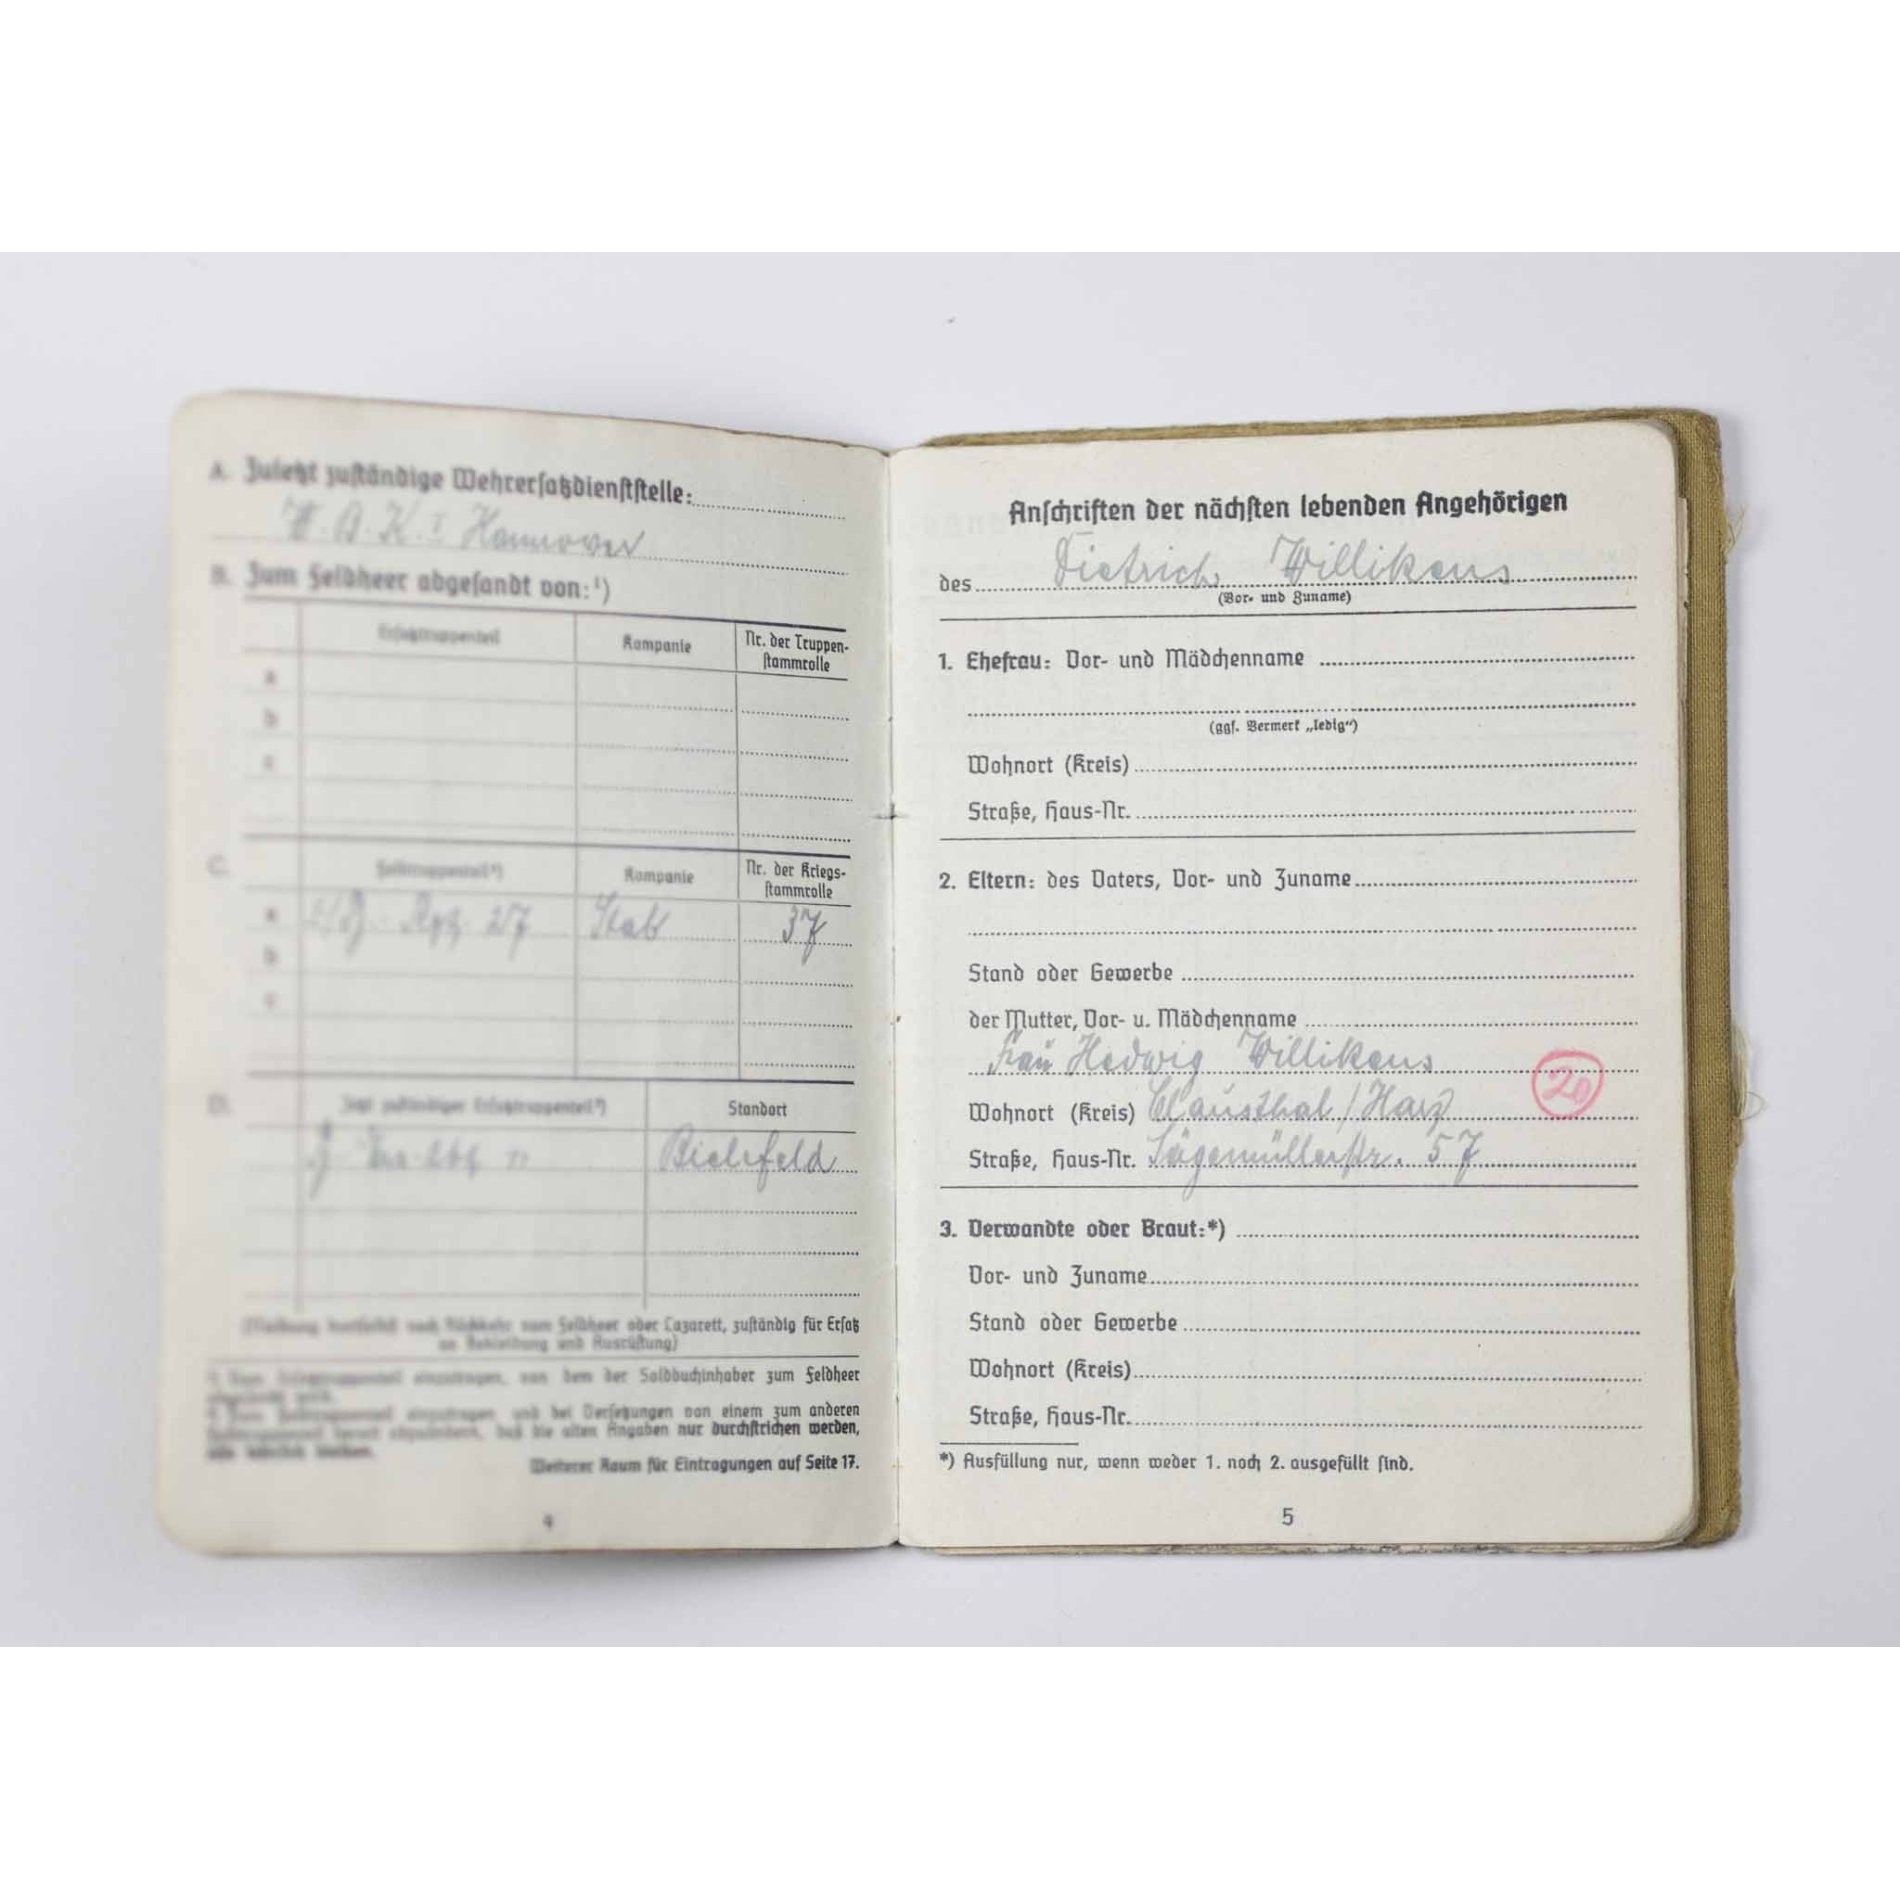 A. Zuletzt zuständige Wehrersatzdienststelle:
W. B. K. I Hannover
B. Zum Feldheer abgesandt von:¹)
Ersatztruppenteil Kompanie Nr. der Truppen-
stammrolle
a
b
c
C. Feldtruppenteil²) Kompanie Nr. der Kriegs-
stammrolle
a Rgt. Stab 37
b
c
D. Jetzt zuständiger Ersatztruppenteil²) Standort
Bielefeld
(Meldung dortselbst nach Rückkehr vom Feldheer oder Lazarett, zuständig für Ersatz
an Bekleidung und Ausrüstung)
¹) Vom Ersatztruppenteil einzutragen, von dem der Soldbuchinhaber zum Feldheer
abgesandt wird.
²) Vom Feldtruppenteil einzutragen und bei Versetzungen von einem zum anderen
Feldtruppenteil derart abzuändern, daß die alten Angaben nur durchstrichen werden,
also leserlich bleiben.
Weiterer Raum für Eintragungen auf Seite 17.
4
Anschriften der nächsten lebenden Angehörigen
des Dietrich Willikens
(Vor- und Zuname)
1. Ehefrau: Vor- und Mädchenname
(ggf. Vermerk „ledig“)
Wohnort (Kreis)
Straße, Haus-Nr.
2. Eltern: des Vaters, Vor- und Zuname
Stand oder Gewerbe
der Mutter, Vor- u. Mädchenname
Frau Hedwig Willikens
Wohnort (Kreis) Clausthal / Harz 20
Straße, Haus-Nr. Sägemüllerstr. 57
3. Verwandte oder Braut:*)
Vor- und Zuname
Stand oder Gewerbe
Wohnort (Kreis)
Straße, Haus-Nr.
*) Ausfüllung nur, wenn weder 1. noch 2. ausgefüllt sind.
5